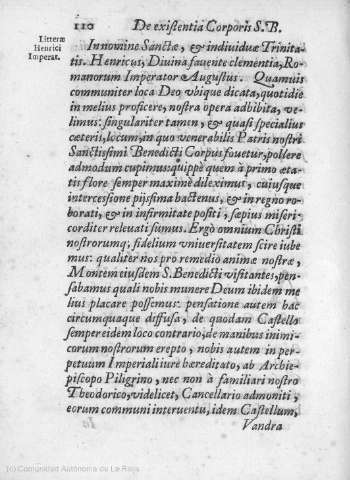 110 De existentia Corporis S. B.
Litteræ
Henrici
Imperat.
In nomine Sanctæ, & individuæ Trinita
tis. Henricus, Divina fauente clementia, Ro-
manorum Imperator Augustus. Quamuis
communiter loca Deo vbique dicata, quotidie
in melius proficere, nostra opera adhibita, ve-
limus: singulariter tamen, & quasi specialius
cæteris, locum, in quo venerabilis Patris nostri
Sanctissimi Benedicti Corpus fouetur, pollere
admodum cupimus: quippè quem à primo æta-
tis flore semper maximè dileximus, cuiusque
intercessione pijssima hactenus, & in regno ro-
borati, & in infirmitate positi, sæpius miseri-
corditer releuati sumus. Ergò omnium Christi
nostrorumq; fidelium vniuersitatem scire iube
mus: qualiter nos pro remedio animæ nostræ,
Montem eiusdem S. Benedicti visitantes, pen-
sabamus quali nobis munere Deum ibidem me
lius placare possemus: pensatione autem hac
circumquaque diffusa, de quodam Castello
semper eidem loco contrario, de manibus inimi-
corum nostrorum erepto, nobis autem in per-
petuum Imperiali iure hæreditato, ab Archie-
piscopo Piligrino, nec non à familiari nostro
Theodorico, videlicet, Cancellario admoniti,
eorum communi interuentu, idem Castellum,
Vandra
(c) Comunidad Autónoma de La Rioja